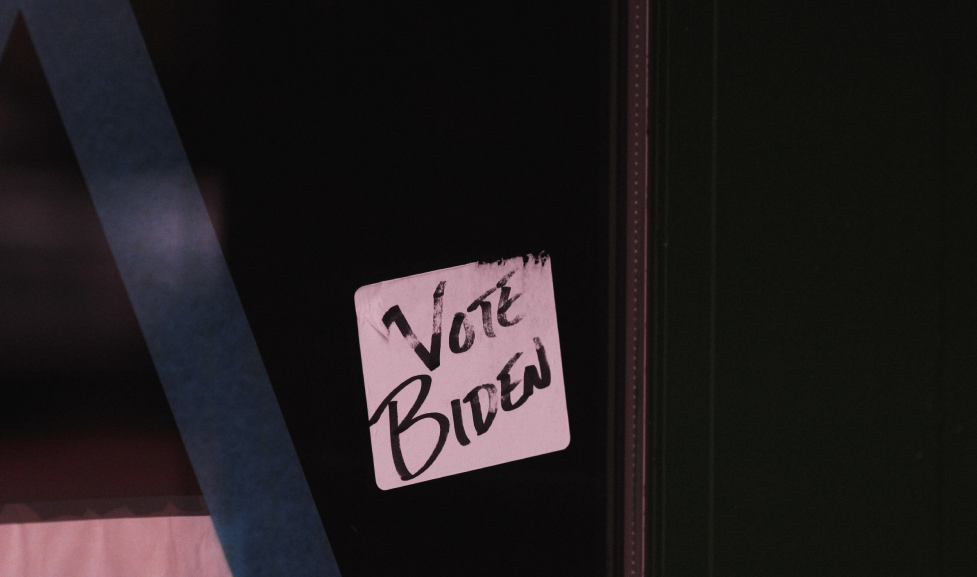 VOTE
BIDEN